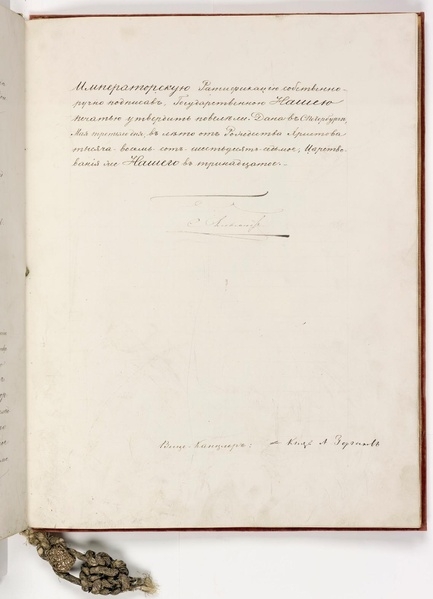 Императорскую Ратификацію собственно-
ручно подписавъ, Государственною Нашею
печатью утвердить повелѣли. Дана въ С.Петербургѣ,
Мая третьяго дня, въ лѣто отъ Рождества Христова
тысяча восемь сотъ шестьдесятъ седьмое, Царство-
ванія же Нашего въ тринадцатое.
Александръ
Вице-Канцлеръ, Князь А Горчаковъ